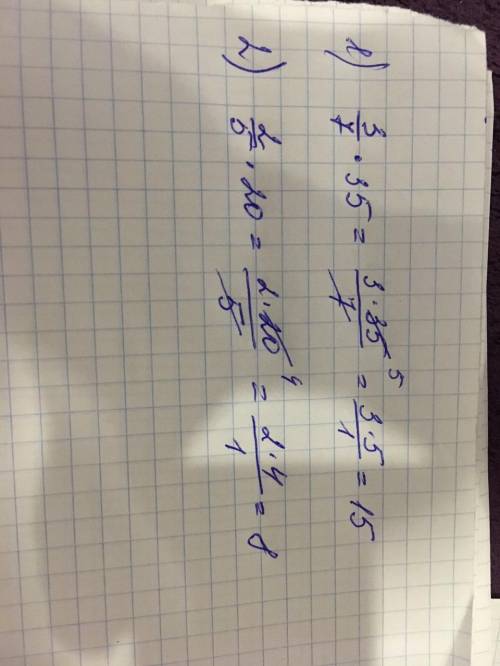 1) 3/7 · 35 = 3·35⁵/7 = 3·5/1 = 15
2) 2/5 · 20 = 2·20⁴/5 = 2·4/1 = 8